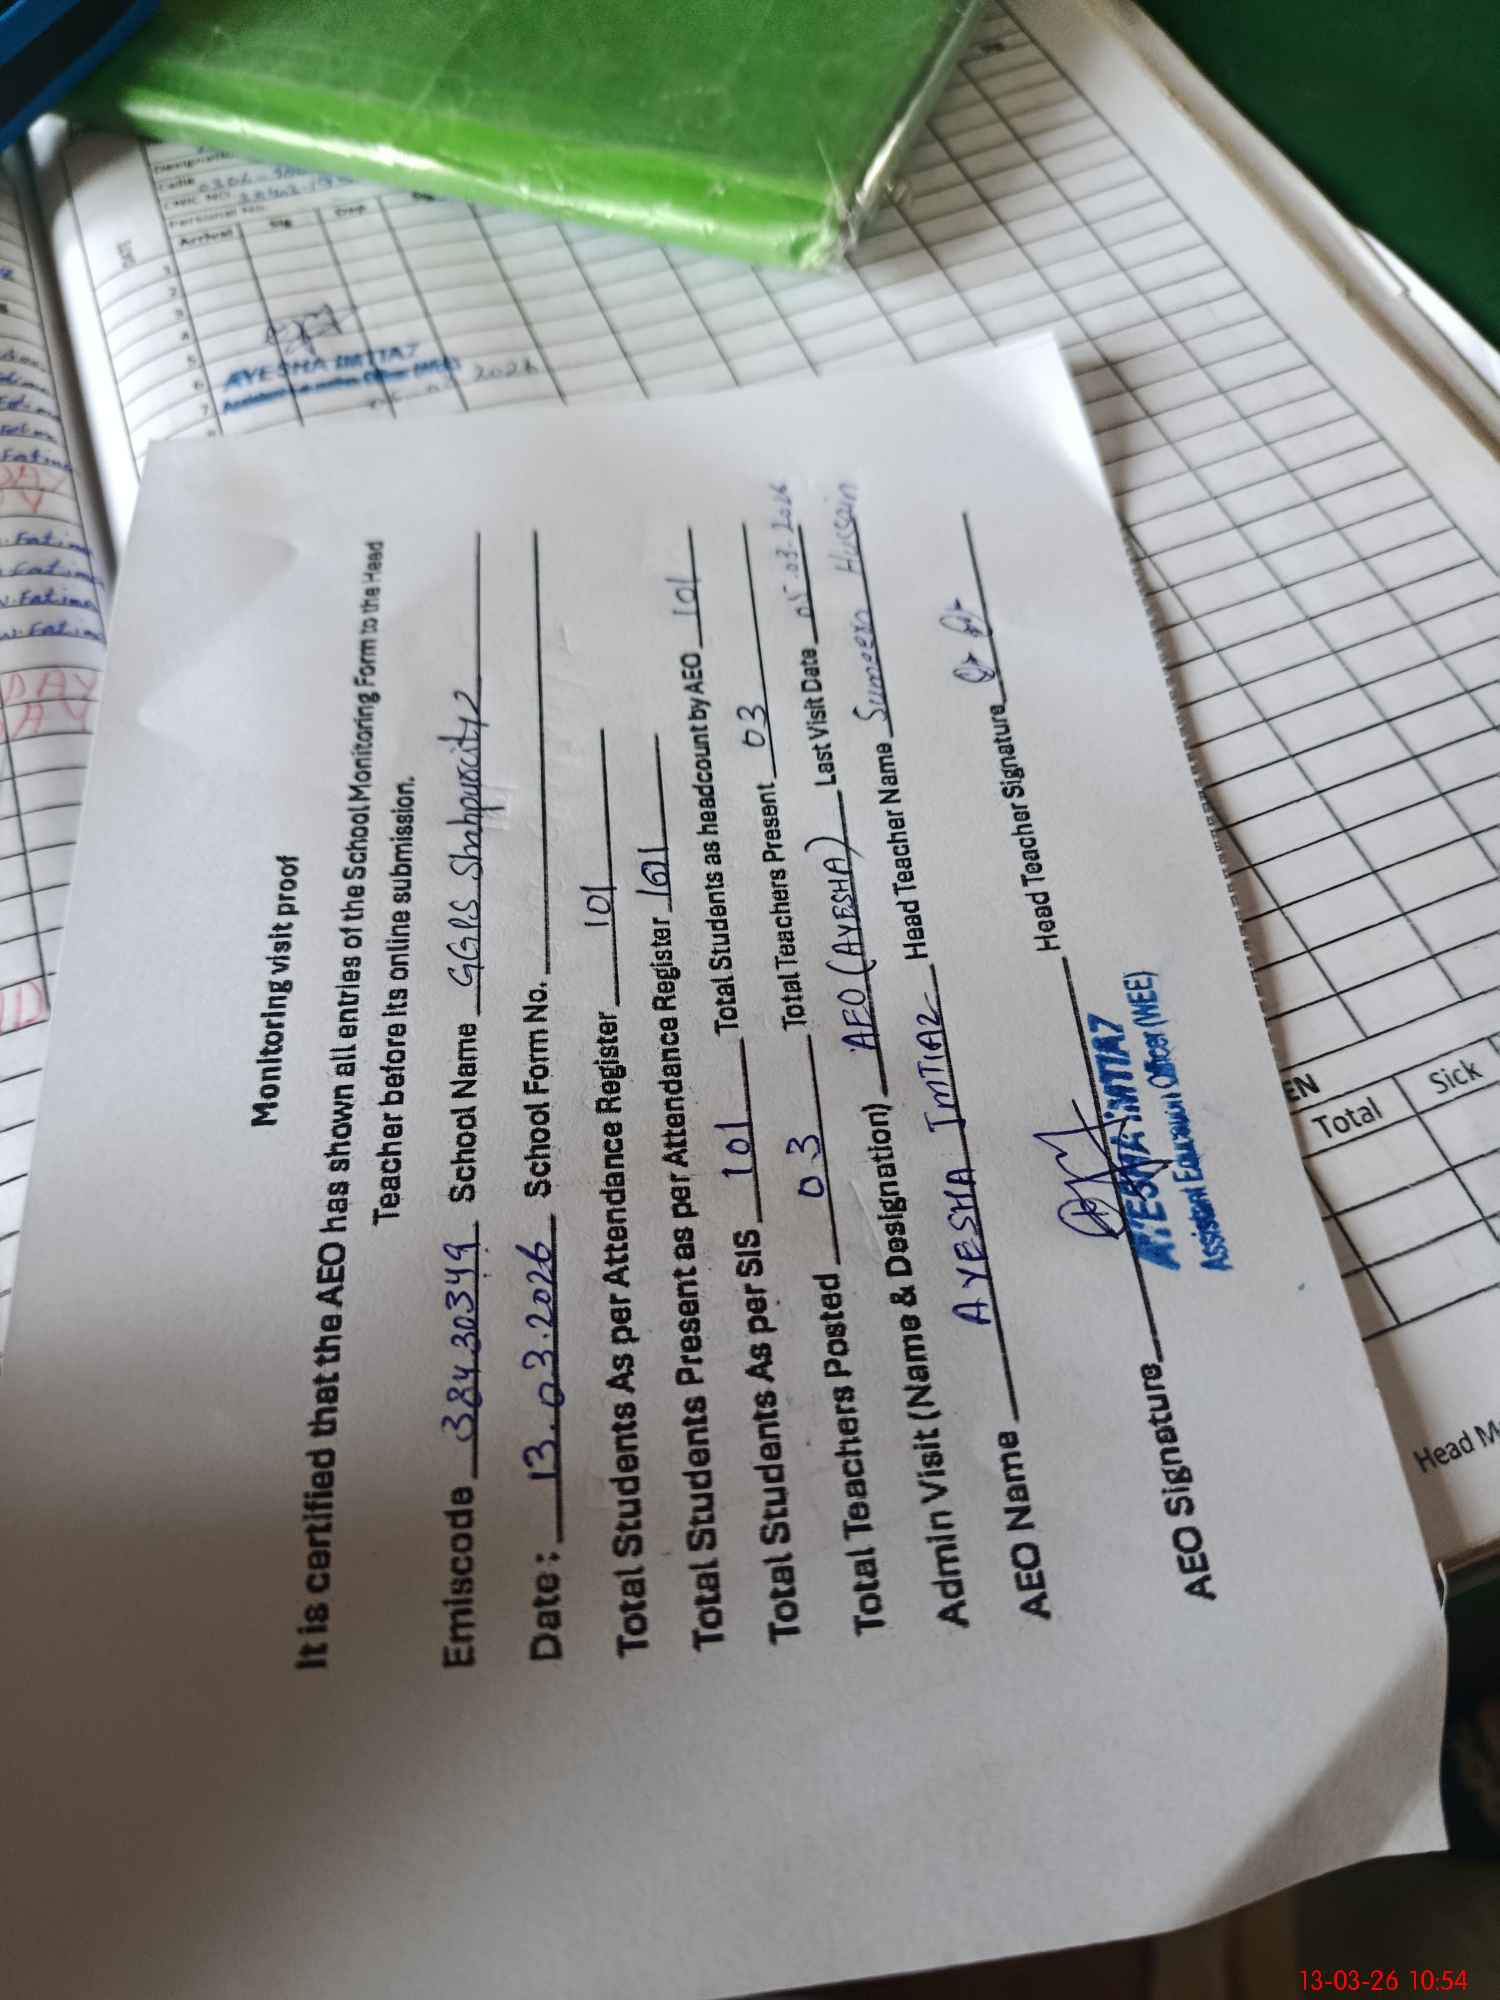 Monitoring visit proof
It is certified that the AEO has shown all entries of the School Monitoring Form to the Head
Teacher before its online submission.
Emiscode 38430349 School Name GGPS Shahpurcity2
Date: 13.03.2026 School Form No.
Total Students As per Attendance Register 101
Total Students Present as per Attendance Register 101
Total Students As per SIS 101 Total Students as headcount by AEO 101
Total Teachers Posted 03 Total Teachers Present 03
Admin Visit (Name & Designation) AEO (AYESHA) Last Visit Date 05.03.2026
AEO Name AYESHA IMTIAZ Head Teacher Name Sumaera Hussain
AEO Signature Head Teacher Signature
AYESHA IMTIAZ
Assistant Education Officer (WEE)
Arrival Sig Dep
1
2
3
4
5
6
7
AYESHA IMTIAZ
2026
Total Sick
Head M
13-03-26 10:54